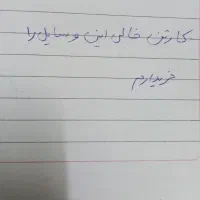 کارتن خالی این وسایل را
خریدارم